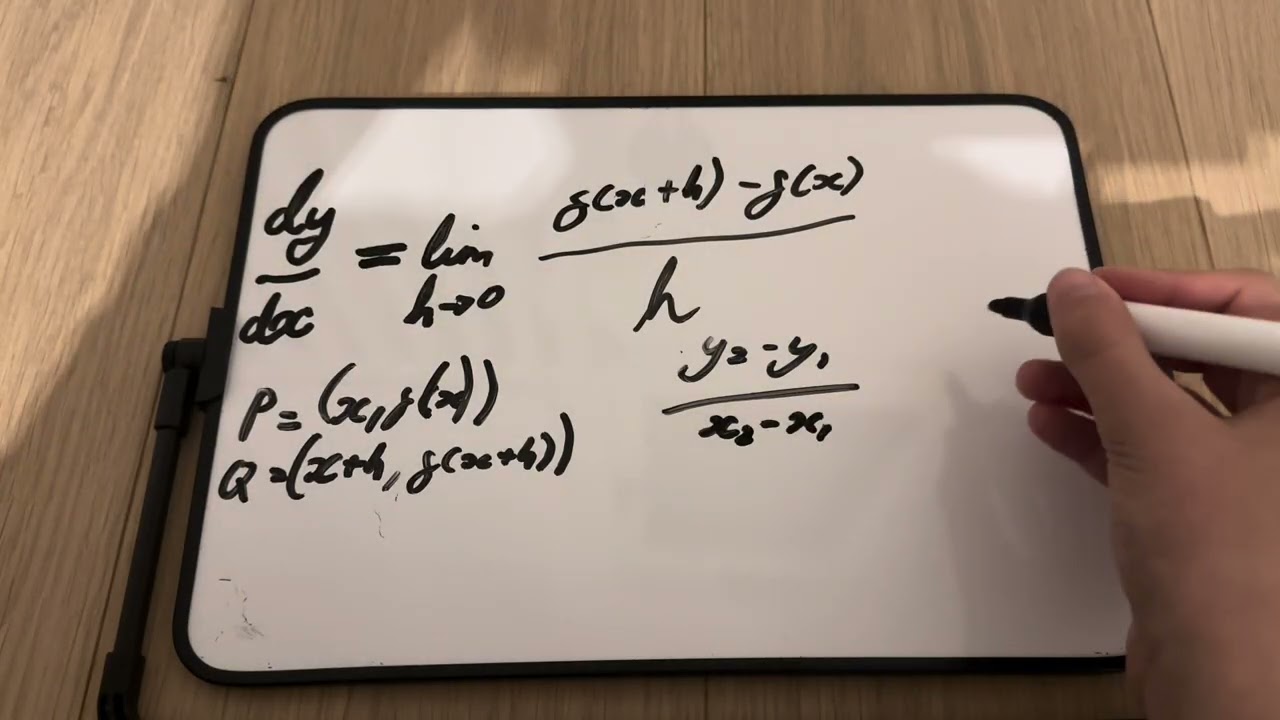 dy/dx = lim h→0 f(x+h) - f(x) / h
P = (x, f(x))
Q = (x+h, f(x+h))
y₂ - y₁ / x₂ - x₁